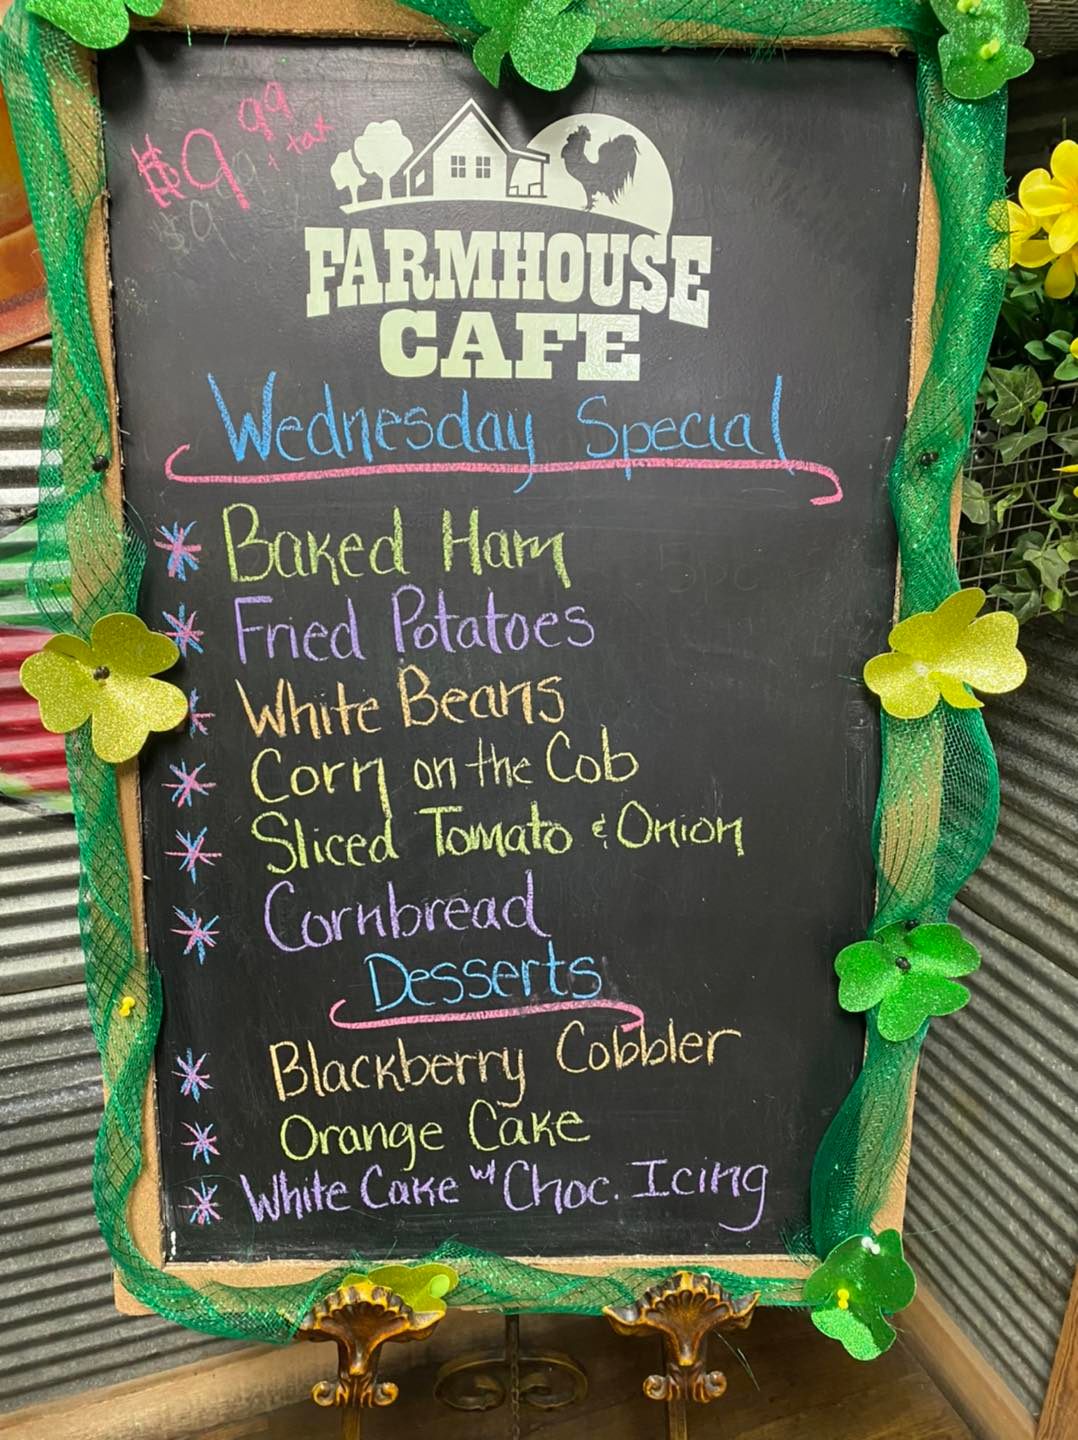 $9.99 + tax
FARMHOUSE
CAFE
Wednesday Special
Baked Ham
Fried Potatoes
White Beans
Corn on the Cob
Sliced Tomato & Onion
Cornbread
Desserts
Blackberry Cobbler
Orange Cake
White Cake w/ Choc. Icing